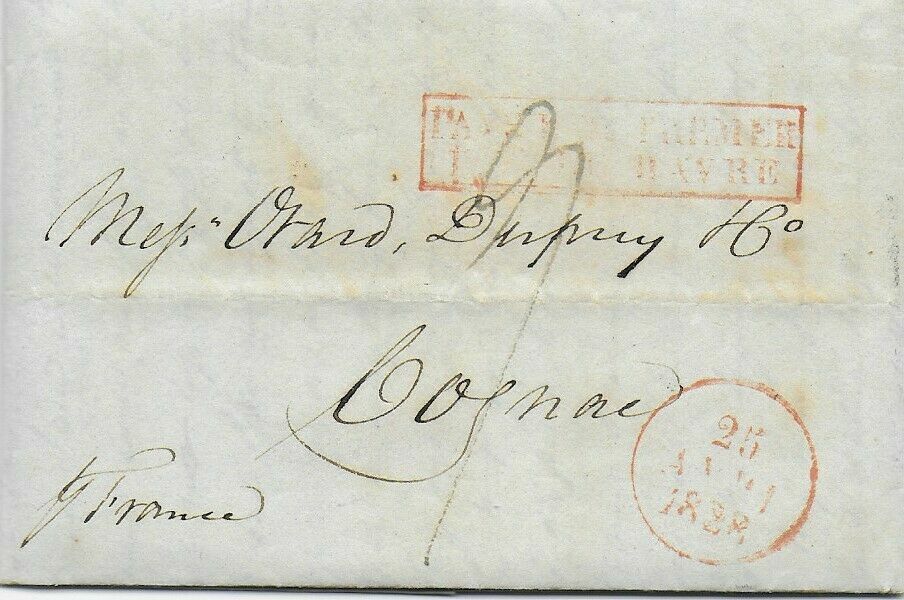 PAYS PREMIER
HAVRE
Messrs Otard, Dupuy & Co
Cognac
25
1828
p France